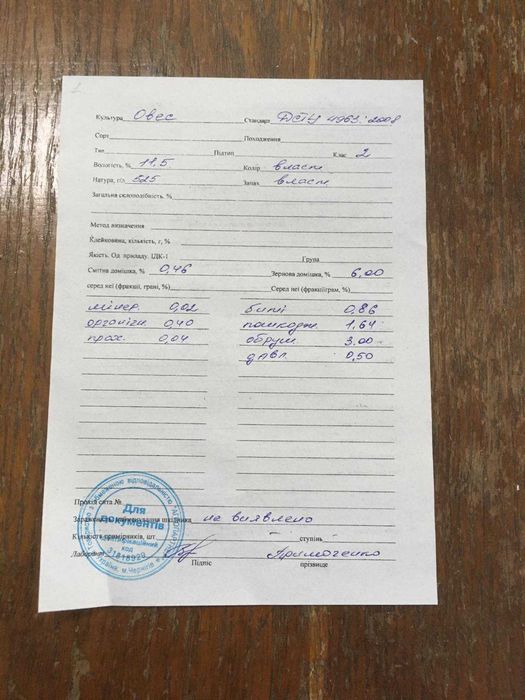 Культура Овес Стандарт ДСТУ 4963:2008
Сорт Походження
Тип Підтип Клас 2
Вологість, % 11.5 Колір власт
Натура, г/л 525 Запах власт
Загальна склоподібність, %
Метод визначення
Клейковина, кількість, г, %
Якість. Од. приладу. ІДК-1 Група
Смітна домішка, % 0,46 Зернова домішка, % 6,00
серед неї (фракції, грані, %) Серед неї (фракції/грам, %)
мінер. 0,02 биті 0,86
органічн. 0,40 пошкодж. 1,64
прох. 0,04 обруш. 3,00
давл. 0,50
Прохід сита №
Зараження шкідника не виявлено
Кількість примірників, шт. ступінь
Лаборант
Підпис прізвище
Для
документів
Ідентифікаційний
код
31818929
Україна, м. Чернігів
з обмеженою відповідальністю